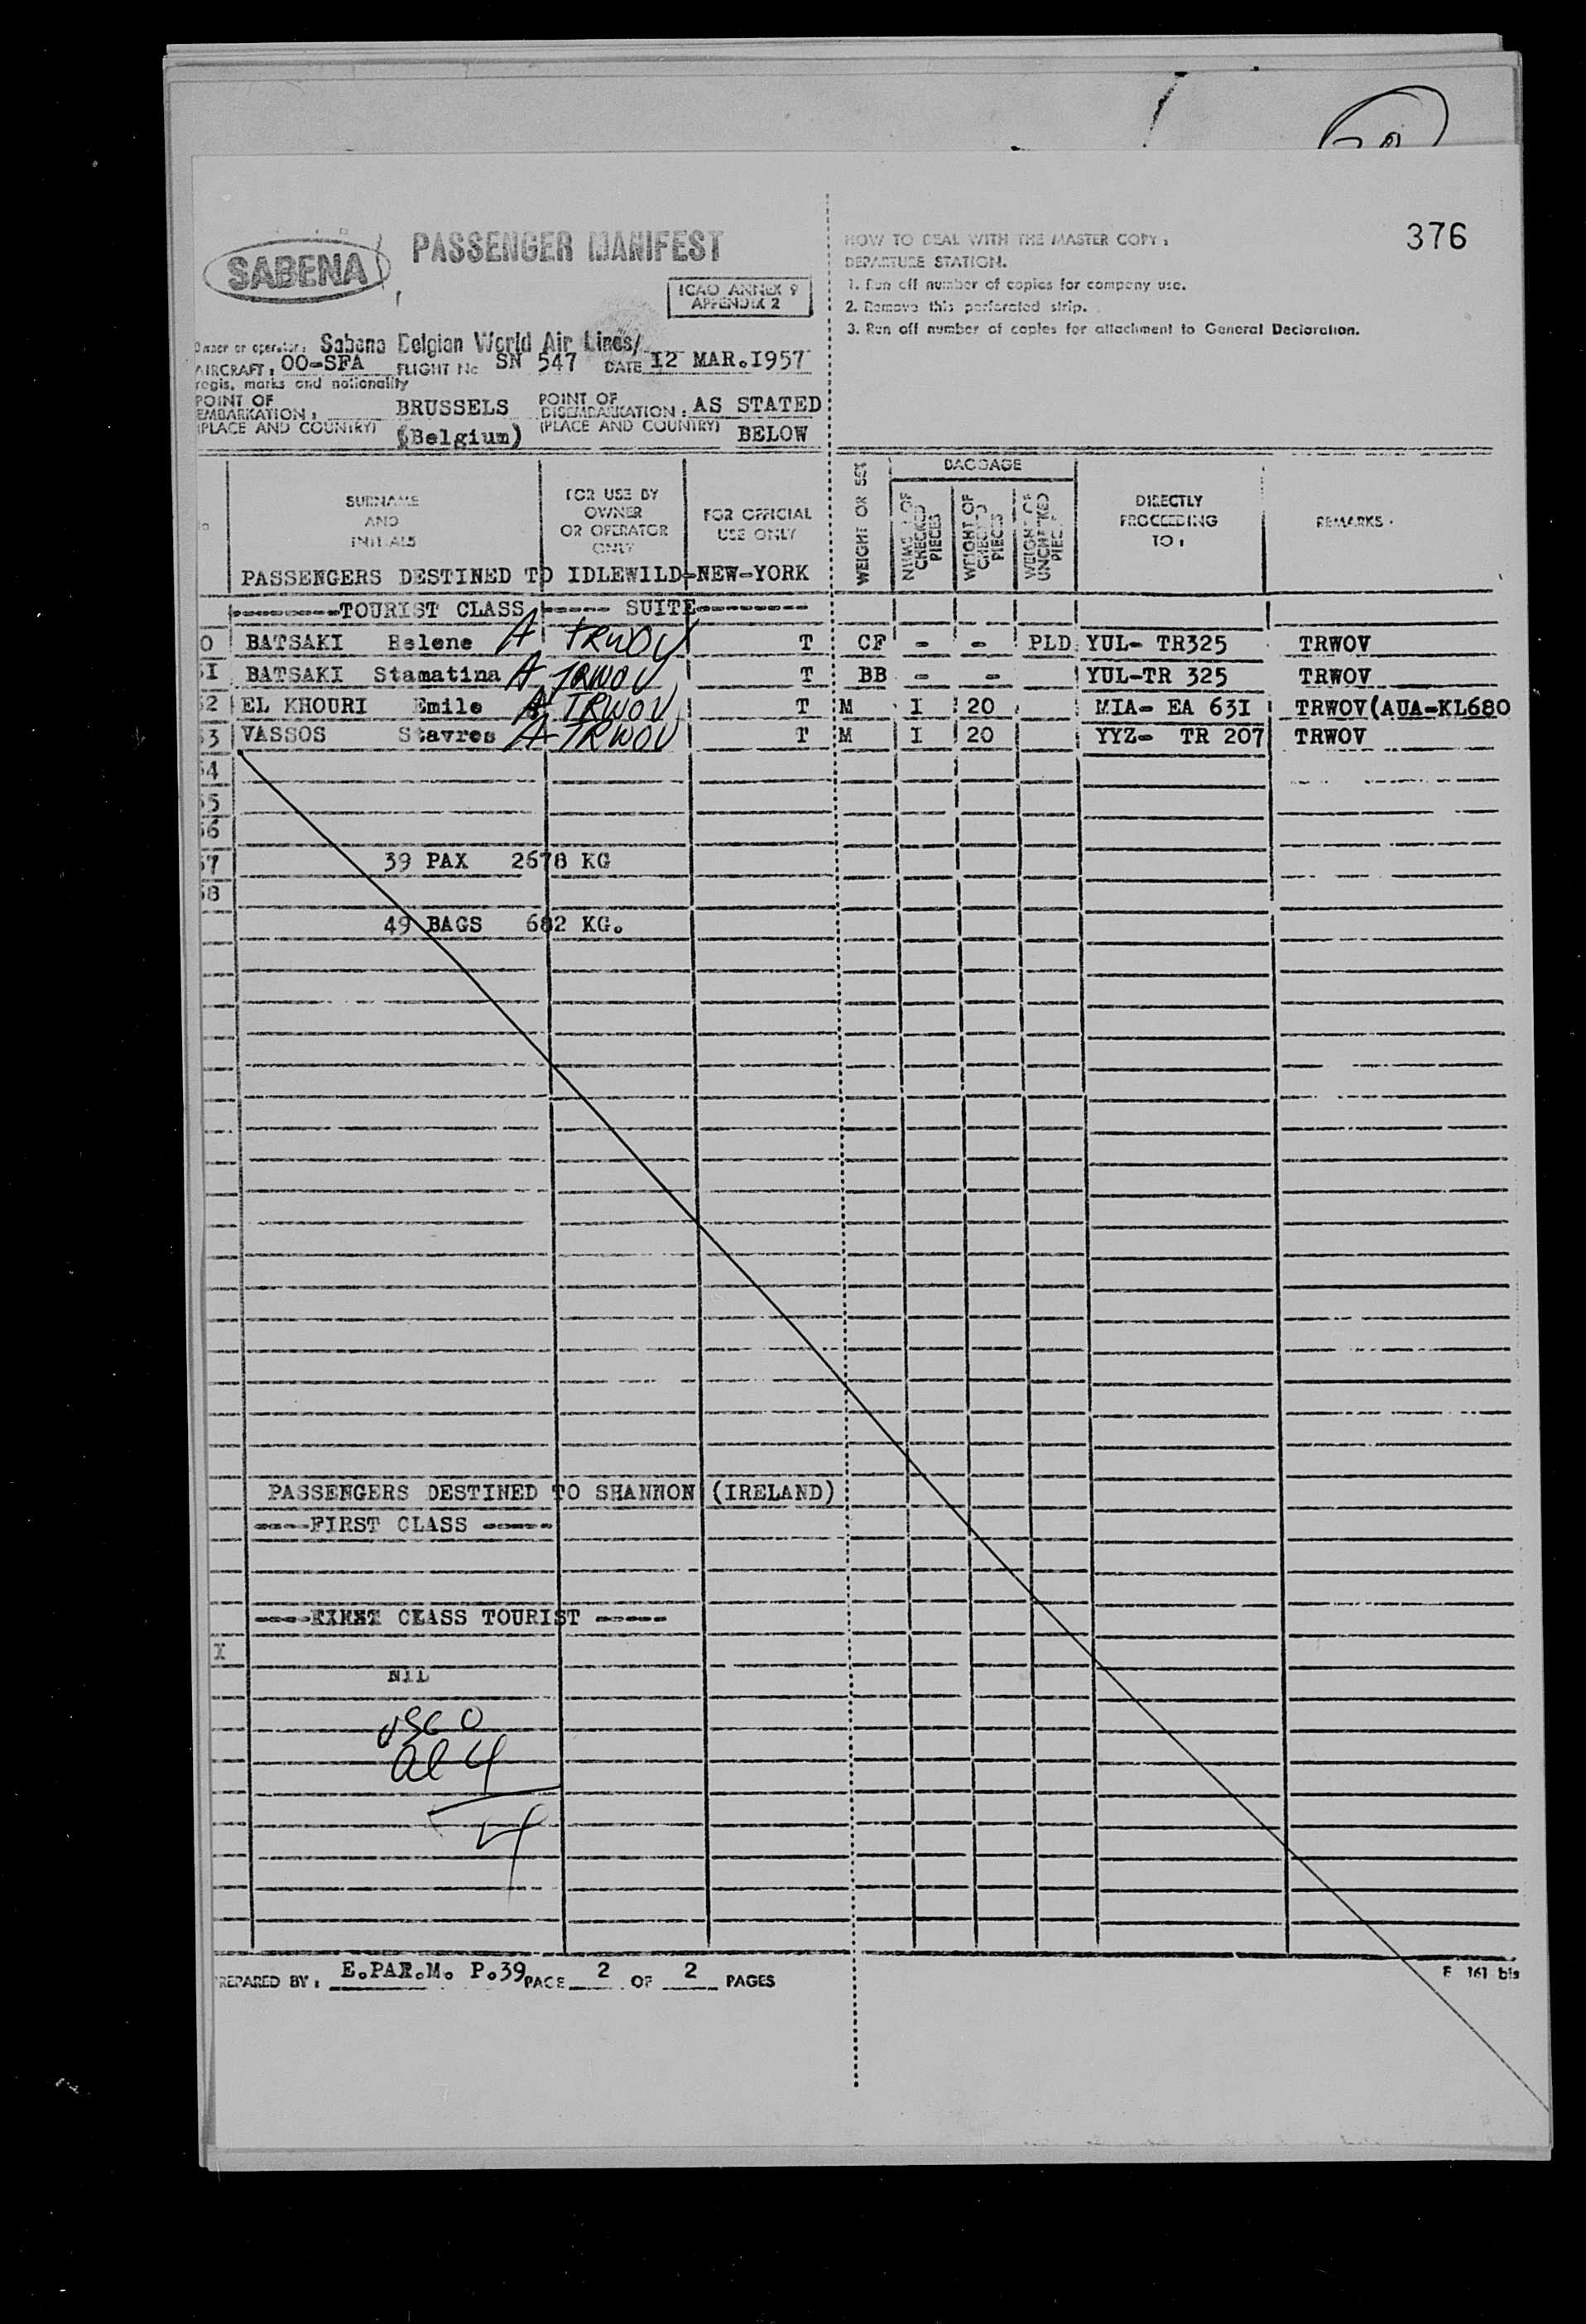 376
SABENA
PASSENGER MANIFEST
ICAO ANNEX 9
APPENDIX 2
HOW TO DEAL WITH THE MASTER COPY :
DEPARTURE STATION.
1. Run off number of copies for company use.
2. Remove this perforated strip.
3. Run off number of copies for attachment to General Declaration.
Owner or operator : Sabena Belgian World Air Lines/
AIRCRAFT : OO-SFA FLIGHT No SN 547 DATE 12 MAR.1957
regis. marks and nationality
POINT OF EMBARKATION : BRUSSELS POINT OF DISEMBARKATION : AS STATED
(PLACE AND COUNTRY) (Belgium) (PLACE AND COUNTRY) BELOW
SURNAME AND INITIALS
FOR USE BY OWNER OR OPERATOR ONLY
FOR OFFICIAL USE ONLY
WEIGHT OR SEX
BAGGAGE
NUMB. OF CHECKED PIECES
WEIGHT OF CHECKED PIECES
WEIGHT OF UNCHECKED PIECES
DIRECTLY PROCEEDING TO :
REMARKS
PASSENGERS DESTINED TO IDLEWILD-NEW-YORK
--------TOURIST CLASS ----- SUITE--------
0 BATSAKI Helene A TRWOV T CF - - PLD YUL- TR325 TRWOV
I BATSAKI Stamatina A TRWOV T BB - - YUL-TR 325 TRWOV
2 EL KHOURI Emile A TRWOV T M I 20 MIA- EA 63I TRWOV(AUA-KL680
3 VASSOS Stavros A TRWOV T M I 20 YYZ- TR 207 TRWOV
4
5
6
7 39 PAX 2678 KG
8
49 BAGS 682 KG.
PASSENGERS DESTINED TO SHANNON (IRELAND)
----FIRST CLASS -----
CLASS TOURIST -----
X
NIL
USC 0
al 4
4
PREPARED BY : E.PAR.M. P.39 PAGE 2 OF 2 PAGES
F 161 bis